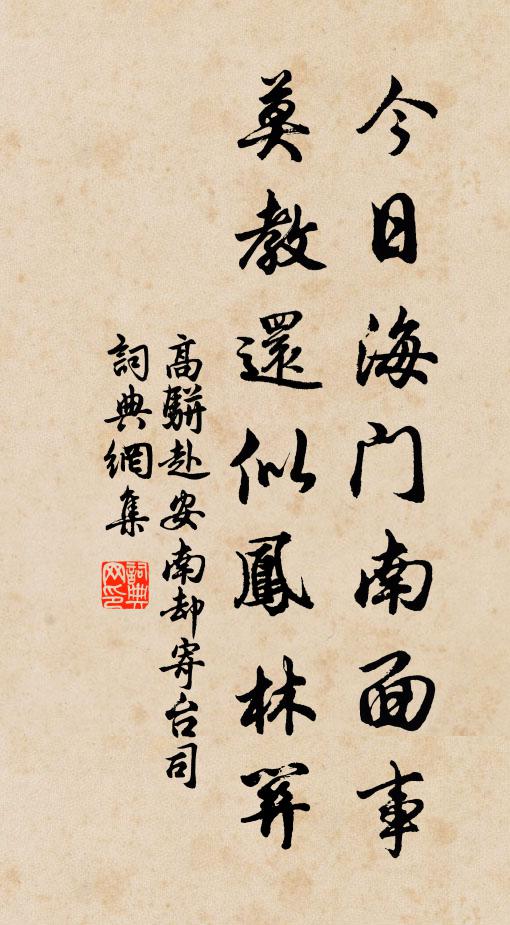 今日海门南面事
莫教還似鳳林關
高駢赴安南却寄台司
詞典網集
詞典网印